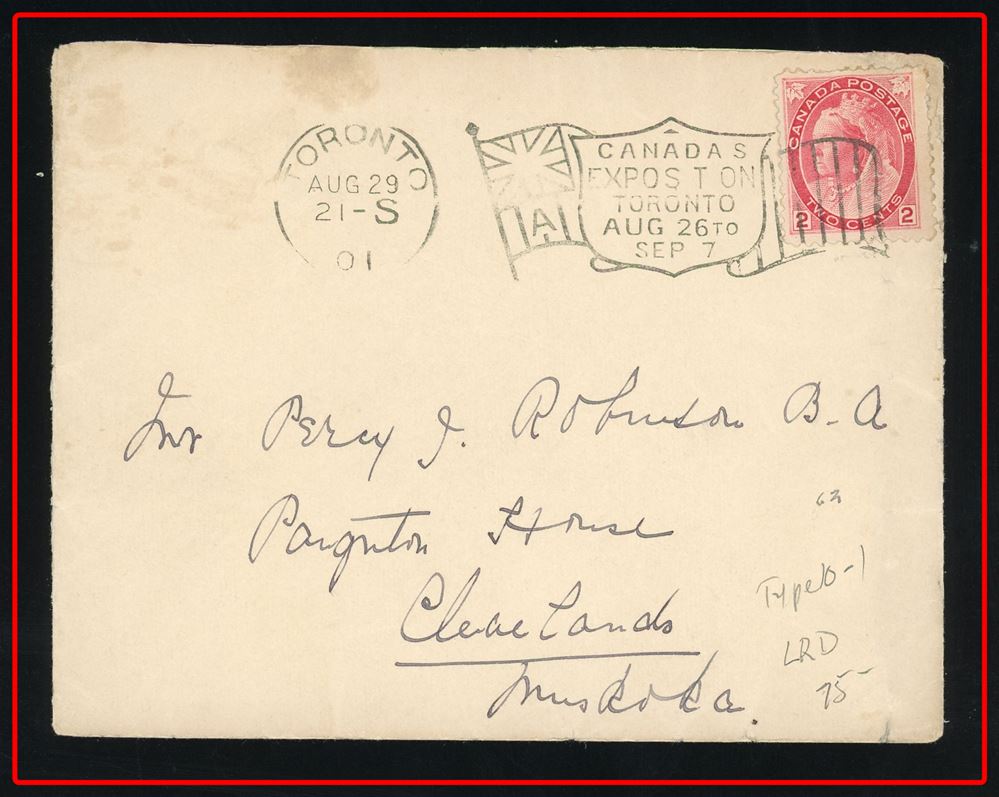 TORONTO
AUG 29
21-S
01
A
CANADAS
EXPOS T ON
TORONTO
AUG 26 TO
SEP 7
CANADA POSTAGE
2 TWO CENTS 2
Mr Percy J. Robinson B-A
Paignton House
Clevelands
Muskoka
63
Type 10-1
LRD
75-